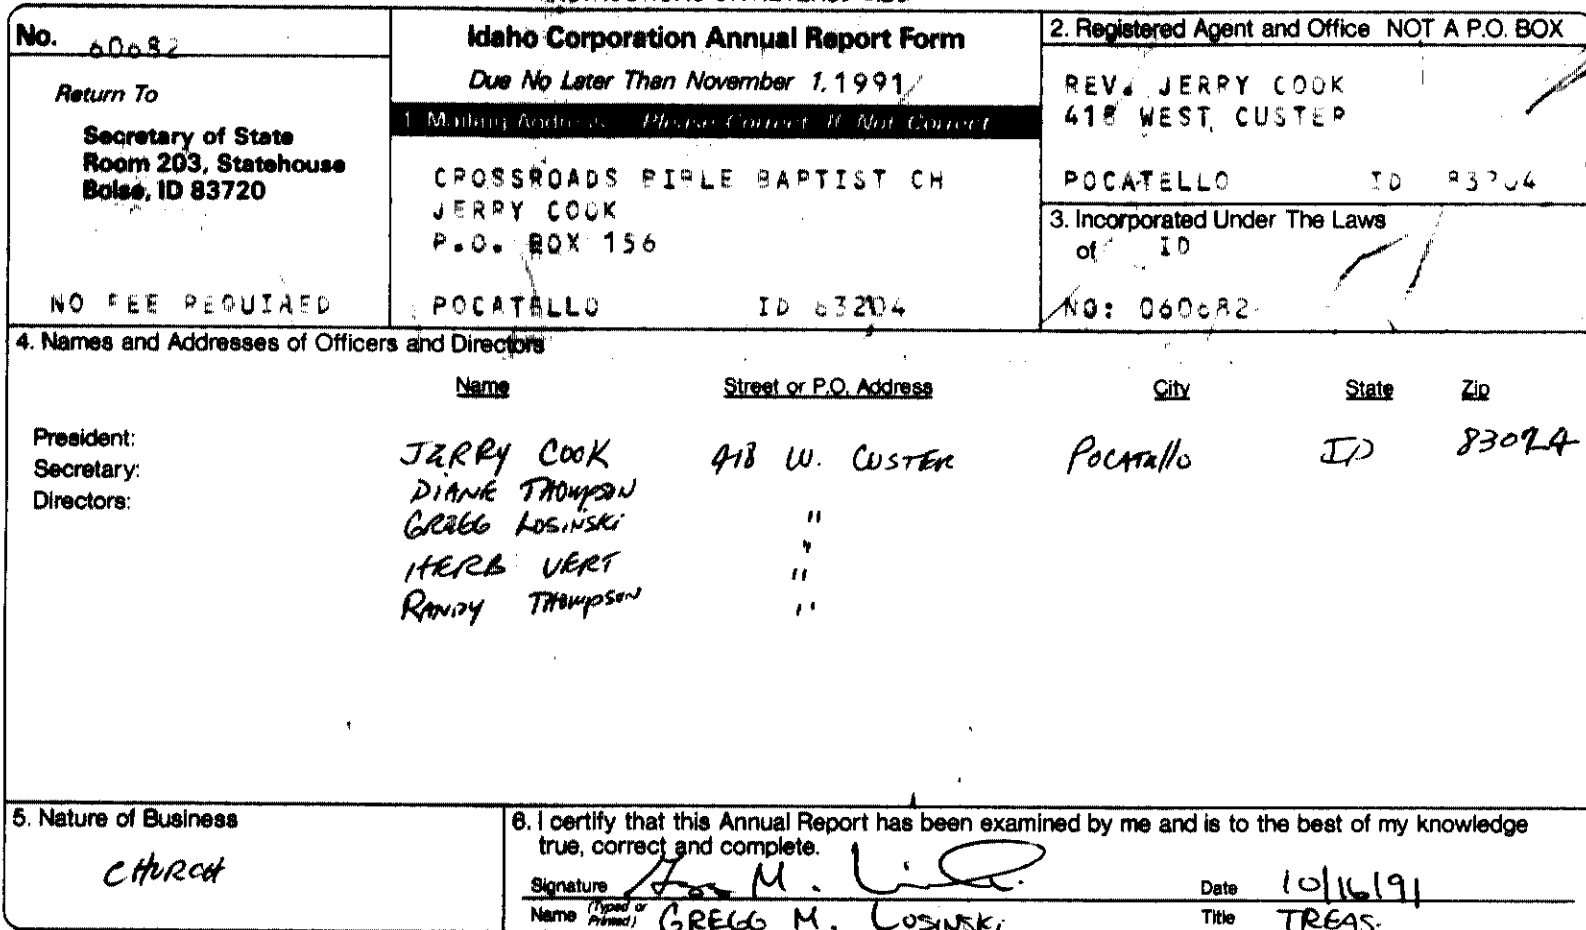 No. 60682
Return To
Secretary of State
Room 203, Statehouse
Boise, ID 83720
NO FEE REQUIRED
Idaho Corporation Annual Report Form
Due No Later Than November 1, 1991
1. Mailing Address Please Correct If Not Correct
CROSSROADS BIBLE BAPTIST CH
JERRY COOK
P.O. BOX 156
POCATELLO ID 83204
2. Registered Agent and Office NOT A P.O. BOX
REV. JERRY COOK
418 WEST CUSTER
POCATELLO ID 83204
3. Incorporated Under The Laws
of ID
NO: 060682
4. Names and Addresses of Officers and Directors
Name Street or P.O. Address City State Zip
President: JERRY COOK 418 W. CUSTER POCATELLO ID 83024
Secretary: DIANE THOMPSON
Directors: GREGG LOSINSKI "
"
HERB VERT "
RANDY THOMPSON "
5. Nature of Business
CHURCH
6. I certify that this Annual Report has been examined by me and is to the best of my knowledge
true, correct and complete.
Signature Date 10/16/91
Name (Typed or Printed) GREGG M. LOSINSKI Title TREAS.